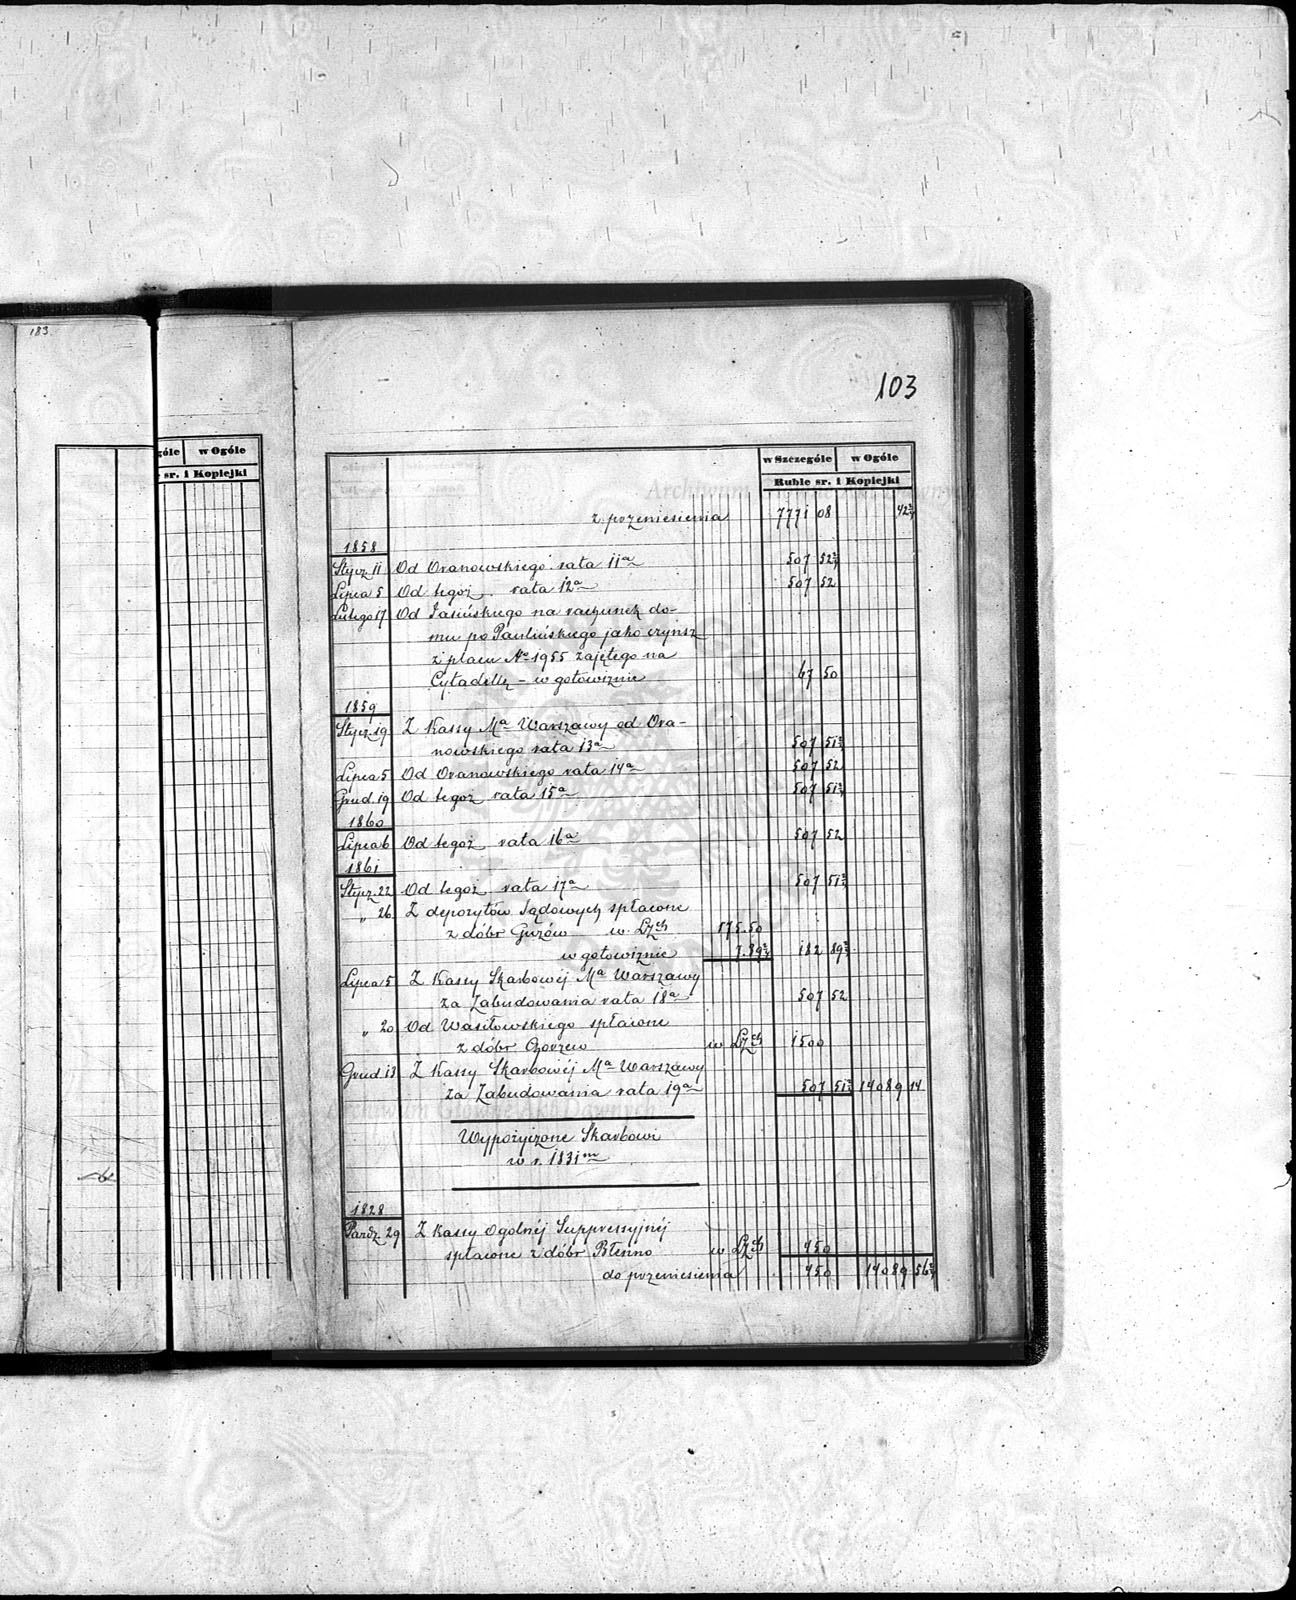 183.
103
góle w Ogóle
sr. i Kopiejki
w Szczególe w Ogóle
Ruble sr. i Kopiejki
Archiwum Główne Akt Dawnych
z przeniesienia 7771 08 42¾
1858
Stycz. 11 Od Oranowskiego rata 11a 507 52¾
Lipca 5 Od tegoż rata 12a 507 52
Lutego 17 Od Jasińskiego na rachunek do-
mu po Paulińskiego jako czynsz
z placu No 1955 zajętego na
Cytadellę - w gotowiznie 67 50
1859
Stycz. 19 Z Kassy Ma Warszawy od Ora-
nowskiego rata 13a 507 51¾
Lipca 5 Od Oranowskiego rata 14a 507 52
Grud. 19 Od tegoż rata 15a 507 51¾
1860
Lipca 6 Od tegoż rata 16a 507 52
1861
Stycz. 22 Od tegoż rata 17a 507 51¾
" 26 Z depozytów Sądowych spłacone
z dóbr Guzów w Lzch 175.50
w gotowiznie 7.39¾ 182 89¾
Lipca 5 Z Kassy Skarbowéj Ma Warszawy
za Zabudowania rata 18a 507 52
" 20 Od Wasiłowskiego spłacone
z dóbr w Lzch 1500
Grud. 13 Z Kassy Skarbowéj Ma Warszawy
za Zabudowania rata 19a 507 51¾ 14089 14
Archiwum Główne Akt Dawnych
Wypożyczone Skarbowi
w r. 1831m
1828
Paźdz. 29 Z Kassy Ogólnéj Suppressyjnéj
spłacone z dóbr Błenno w Lzch 450
do przeniesienia 450 14089 56¾